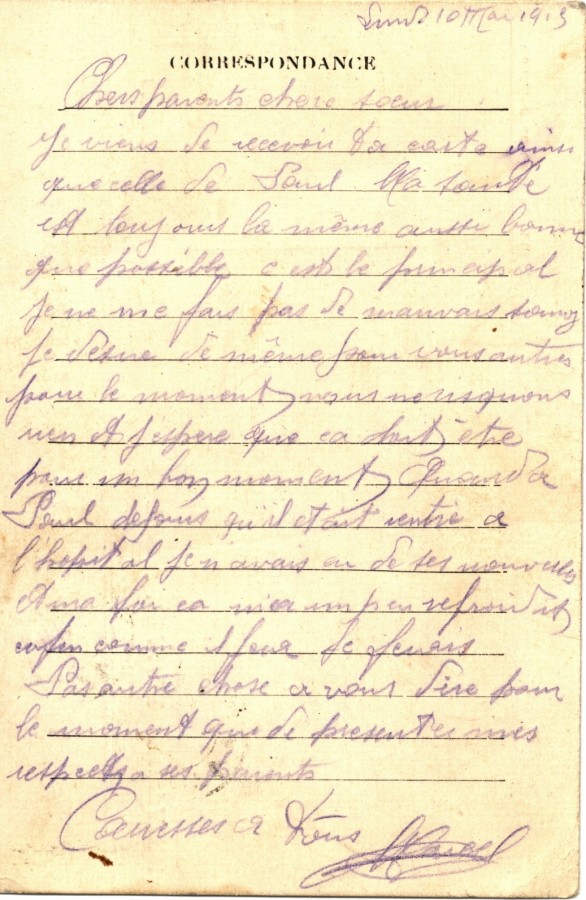 Lundi 10 Mai 1915
CORRESPONDANCE
Chers parents chere soeur
Je viens de recevoir ta carte ainsi
que celle de Paul Ma santé
est toujours la même aussi bonne
que possible c est le principal
je ne me fais pas de mauvais sang
je desire de même pour vous autres
pour le moment nous ne risquons
rien et j espere que ca doit être
pour un bon moment Quand a
Paul depuis qu'il etait rentré a
l'hopital je n avais eu de ses nouvelles
et ma foi ca m a un peu refroidit
enfin comme
Pas autre chose a vous dire pour
le moment que de presenter mes
respects a ses parents
Caresses a Tous Marcel